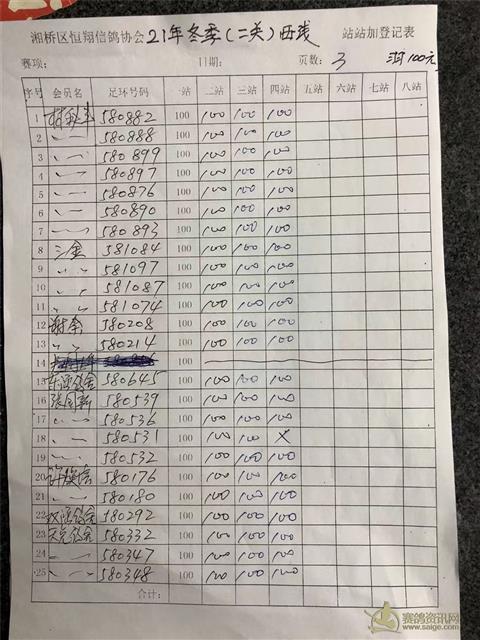 湘桥区恒翔信鸽协会21年冬季(二关)西线 站站加登记表
赛项: 日期: 页数: 3 100元
序号 会员名 足环号码 一站 二站 三站 四站 五站 六站 七站 八站
1 580882 100 100 100 100
2 〃 580888 100 100 100 100
3 〃 580899 100 100 100 100
4 〃 580897 100 100 100 100
5 〃 580876 100 100 100 100
6 〃 580890 100 100 100 100
7 〃 580893 100 100 100 100
8 三金 581084 100 100 100 100
9 〃 581097 100 100 100 100
10 〃 581087 100 100 100 100
11 〃 581074 100 100 100 100
12 谢南 580208 100 100 100 100
13 〃 580214 100 100 100 100
14 100
15 580645 100 100 100 100
16 580539 100 100 100 100
17 〃 580536 100 100 100 100
18 〃 580531 100 100 100 ×
19 〃 580532 100 100 100 100
20 580176 100 100 100 100
21 〃 580180 100 100 100 100
22 580292 100 100 100 100
23 580332 100 100 100 100
24 〃 580347 100 100 100 100
25 〃 580348 100 100 100 100
合计:
赛鸽资讯网
www.saige.com